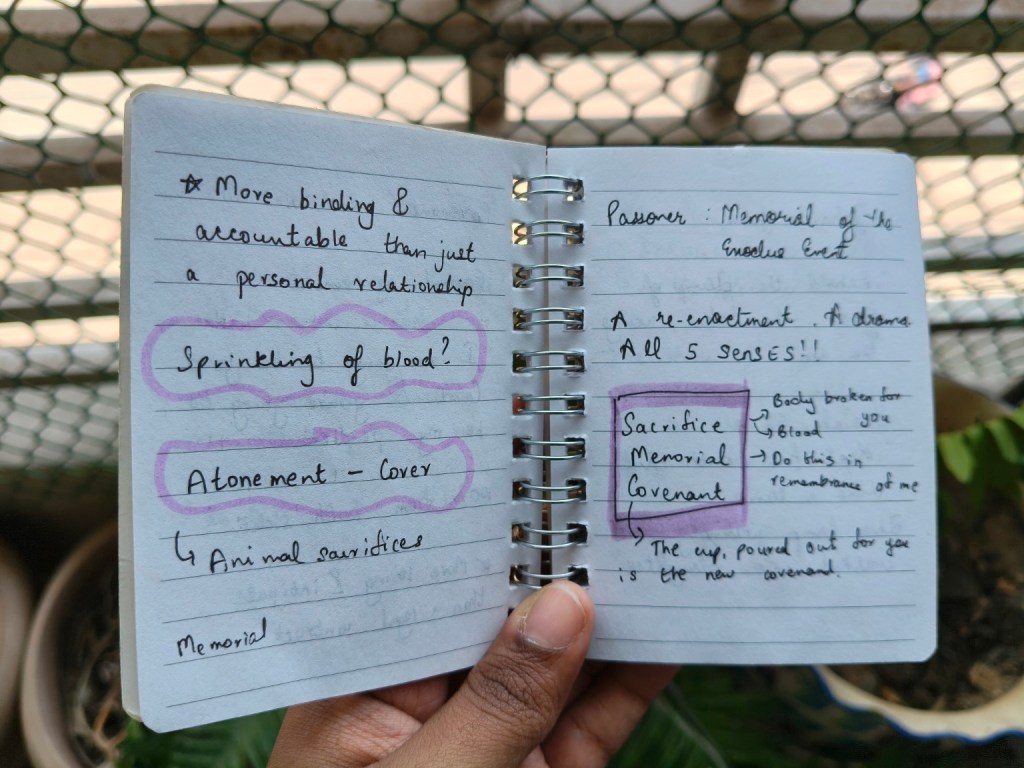 ☆ More binding &
accountable than just
a personal relationship
Sprinkling of blood?
Atonement - Cover
↳ Animal sacrifices
Memorial
Passover : Memorial of the
Exodus Event
A re-enactment. A drama.
All 5 senses!!
Sacrifice → Body broken for you
→ Blood
Memorial → Do this in
remembrance of me
Covenant
→ The cup, poured out for you
is the new covenant.